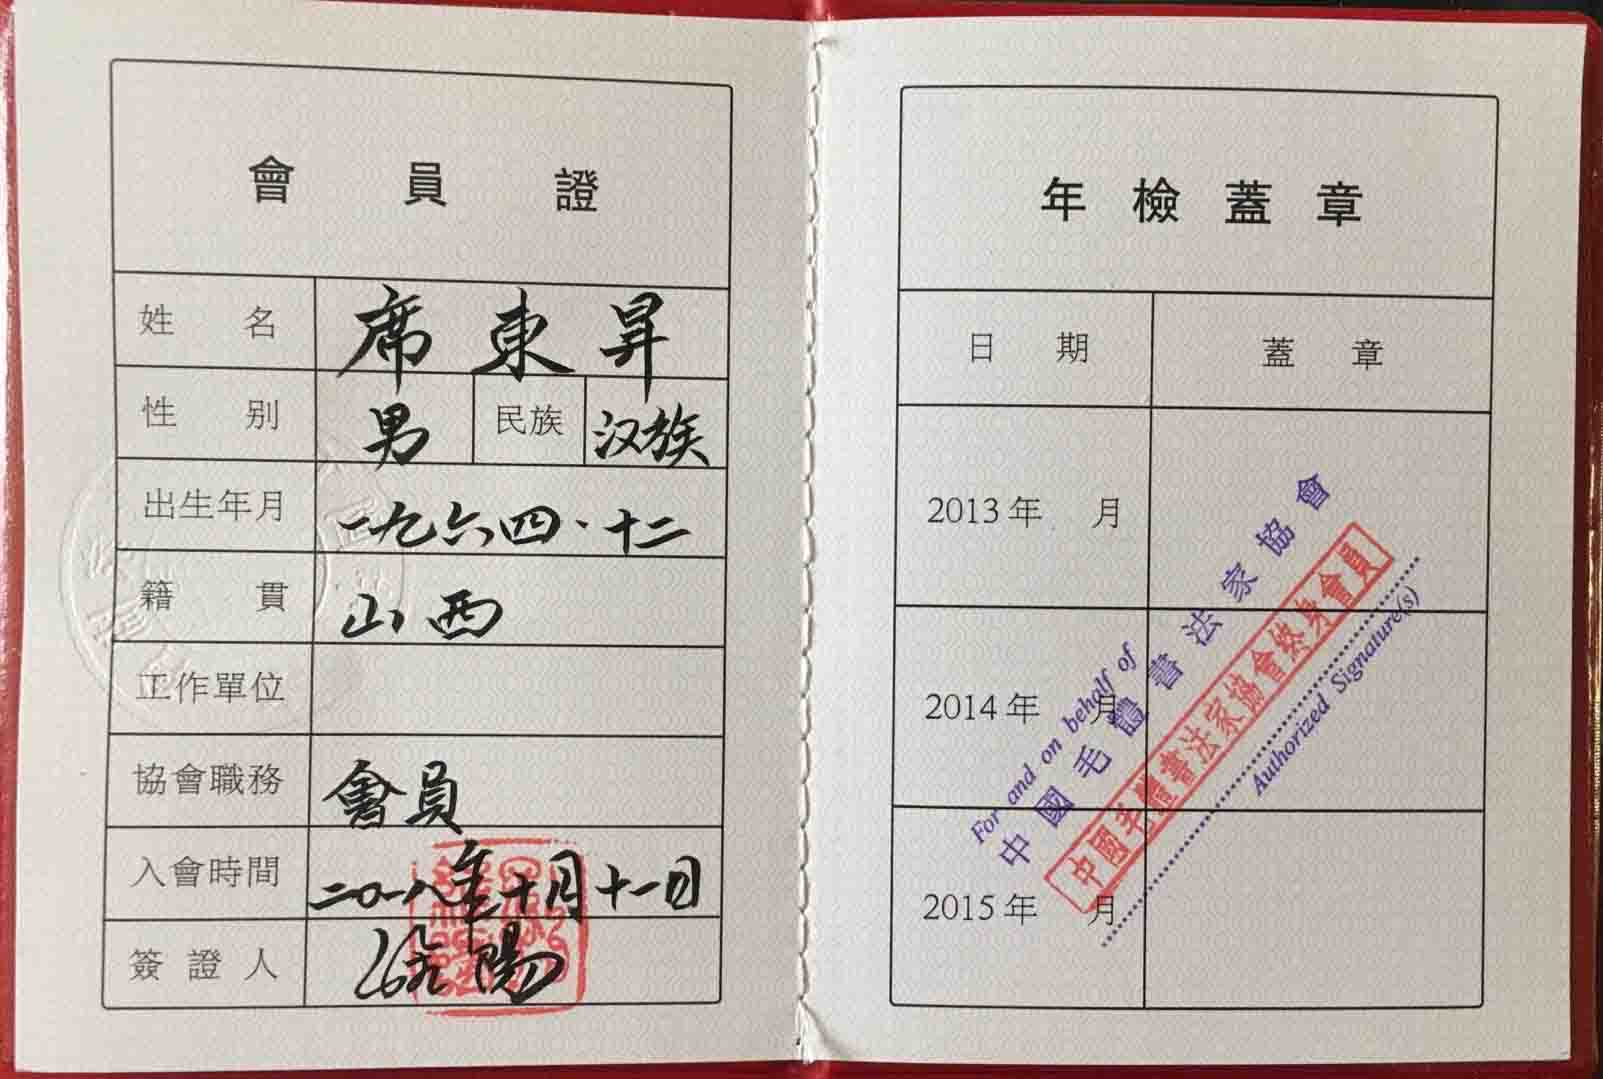 會員證
姓名 席東昇
性別 男 民族 汉族
出生年月 一九六四、十二
籍貫 山西
工作單位
協會職務 會員
入會時間 二〇一八年十月十一日
簽證人
年檢蓋章
日期 蓋章
2013年 月
2014年 月
2015年 月
For and on behalf of
中國毛體書法家協會
中國毛體書法家協會終身會員
Authorized Signature(s)